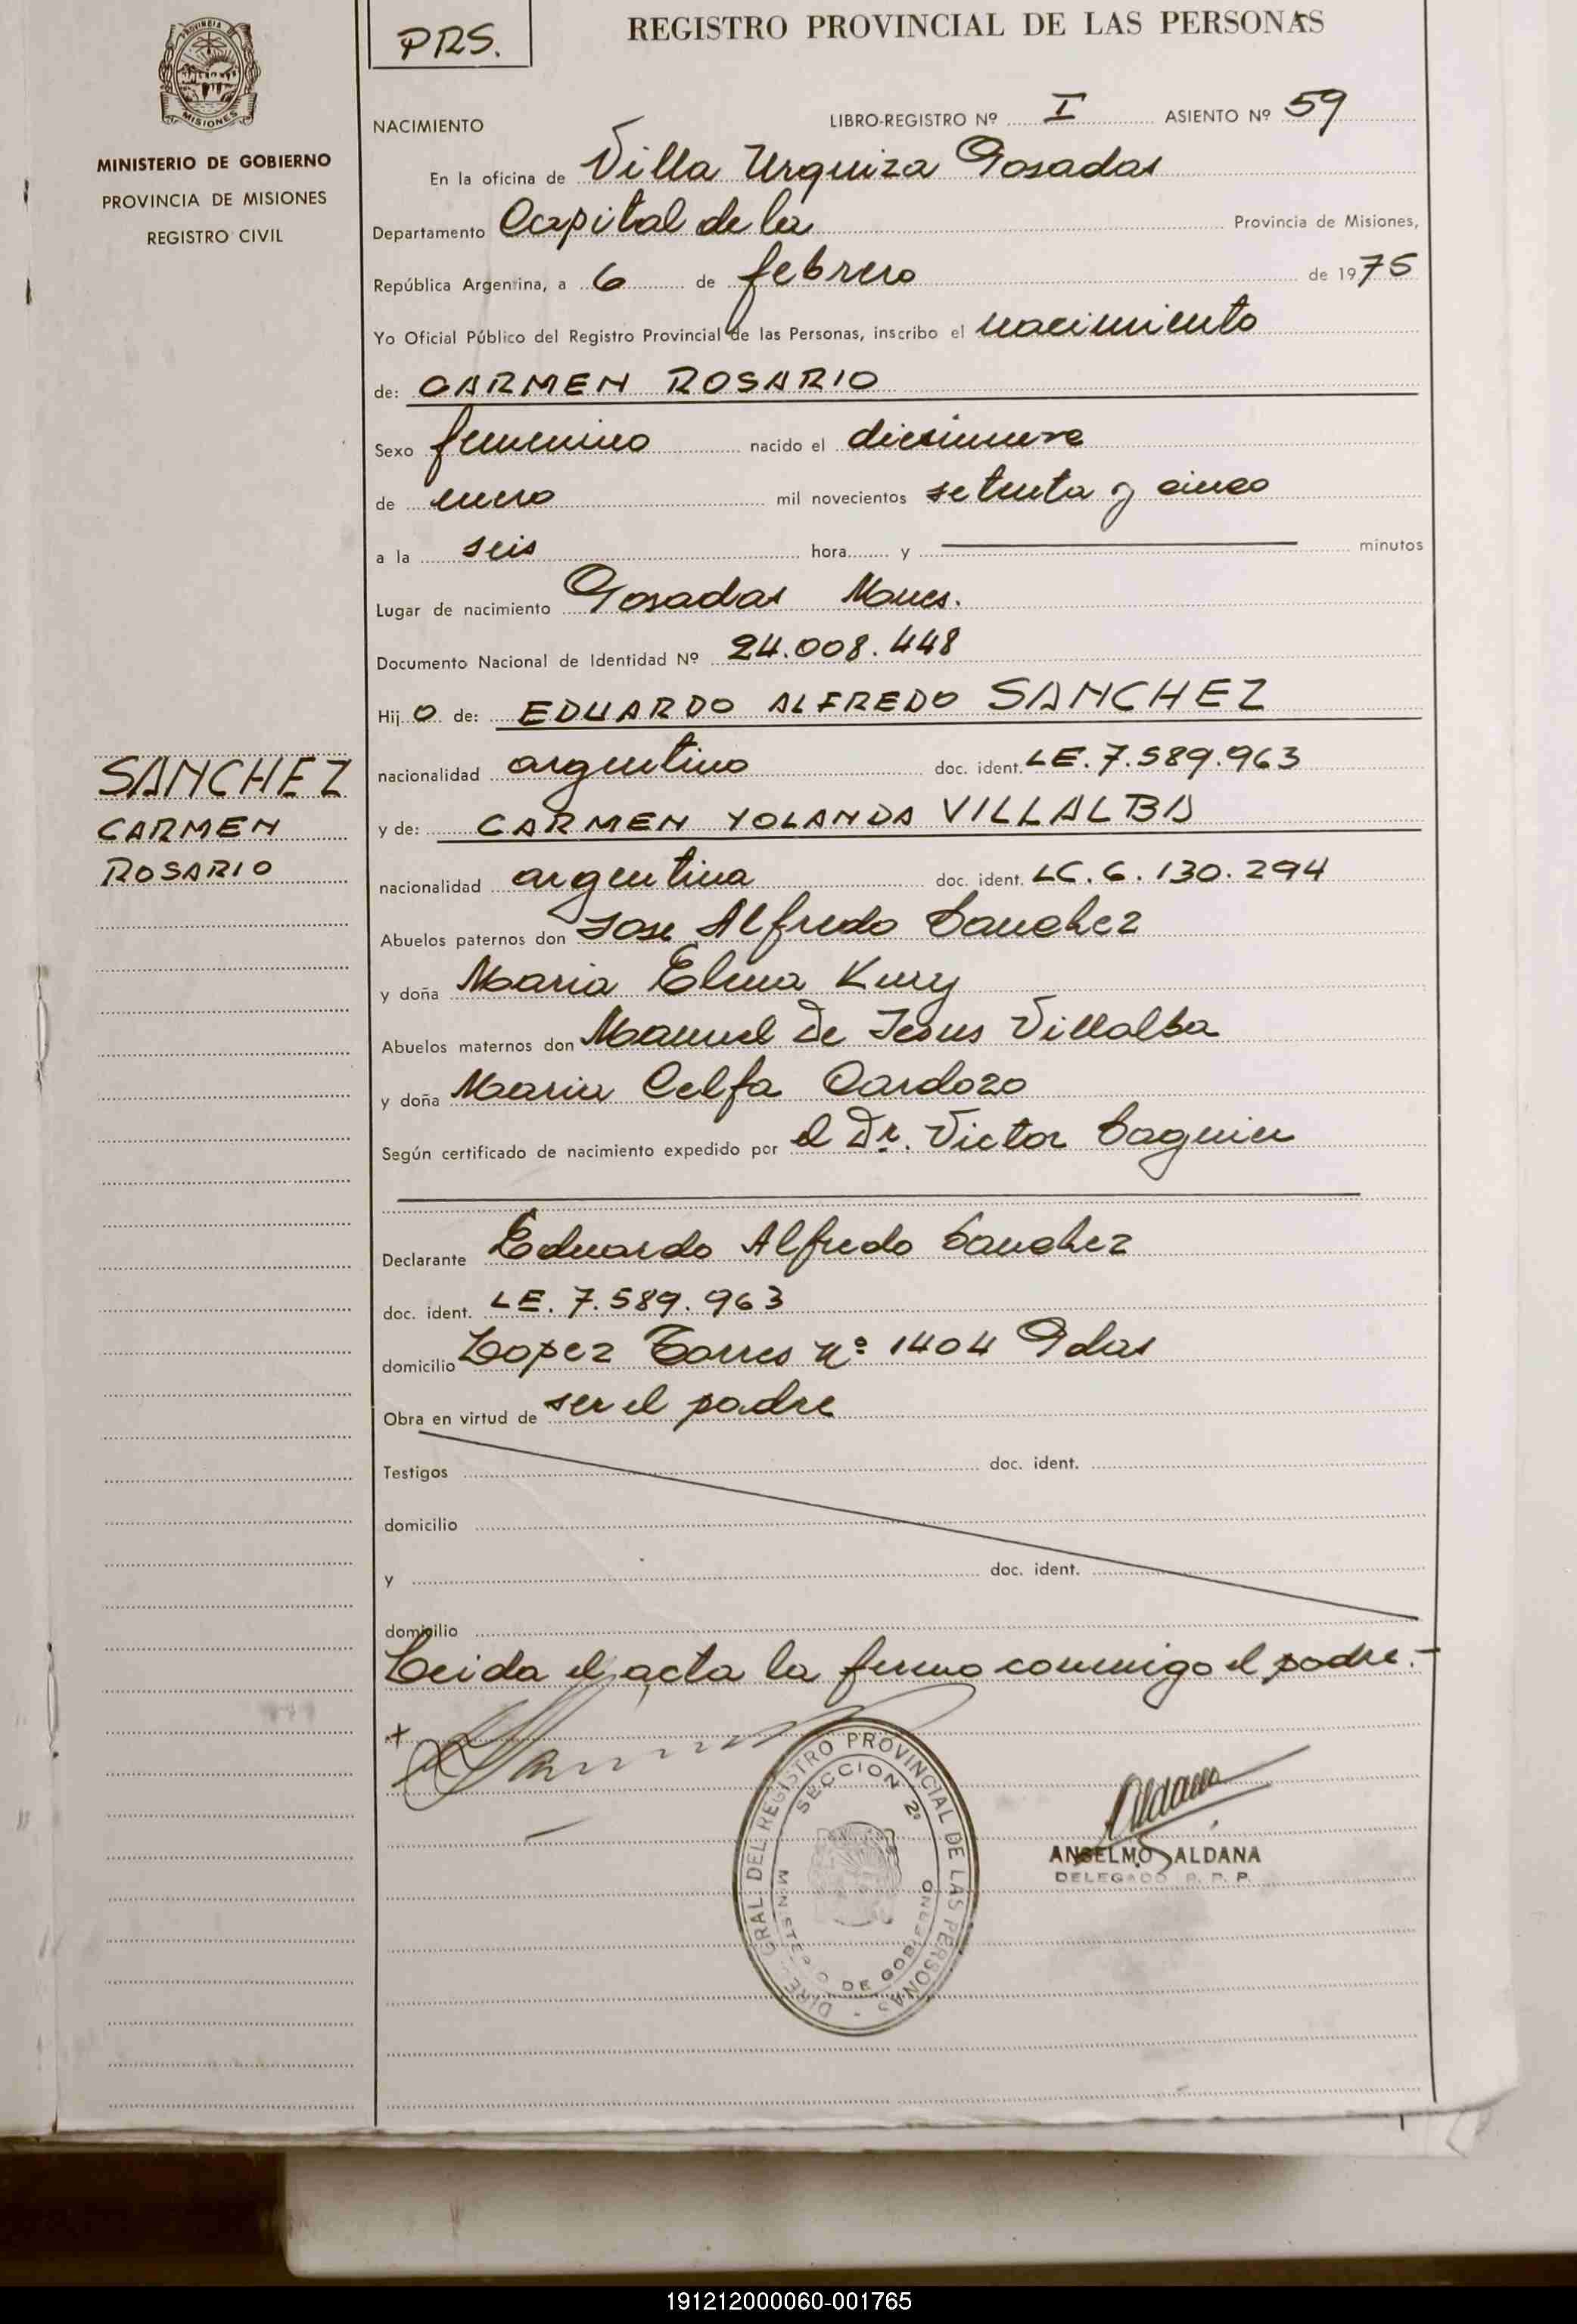 PROVINCIA
MISIONES
MINISTERIO DE GOBIERNO
PROVINCIA DE MISIONES
REGISTRO CIVIL
PRS.
REGISTRO PROVINCIAL DE LAS PERSONAS
NACIMIENTO
LIBRO-REGISTRO Nº I ASIENTO Nº 59
En la oficina de Villa Urquiza Posadas
Departamento Capital de la Provincia de Misiones,
República Argentina, a 6 de febrero de 1975
Yo Oficial Público del Registro Provincial de las Personas, inscribo el nacimiento
de: CARMEN ROSARIO
Sexo femenino nacido el diesinueve
de enero mil novecientos setenta y cinco
a la seis hora y minutos
Lugar de nacimiento Posadas Mnes.
Documento Nacional de Identidad Nº 24.008.448
Hij o de: EDUARDO ALFREDO SANCHEZ
SANCHEZ
CARMEN
ROSARIO
nacionalidad argentino doc. ident. LE. 7.589.963
y de: CARMEN YOLANDA VILLALBA
nacionalidad argentina doc. ident. LC. 6.130.294
Abuelos paternos don Jose Alfredo Sanchez
y doña Maria Elena Kury
Abuelos maternos don Manuel De Jesus Villalba
y doña Maria Celfa Cardozo
Según certificado de nacimiento expedido por el Dr. Victor Saguier
Declarante Eduardo Alfredo Sanchez
doc. ident. LE. 7.589.963
domicilio Lopez Torres nº 1404 Pdas
Obra en virtud de ser el padre
Testigos doc. ident.
domicilio
y doc. ident.
domicilio
Leida el acta la firmo conmigo el padre.-
DIREC. GRAL. DEL REGISTRO PROVINCIAL DE LAS PERSONAS -
SECCION 2º
MINISTERIO DE GOBIERNO
Aldana
ANSELMO ALDANA
DELEGADO R. P. P.
191212000060-001765